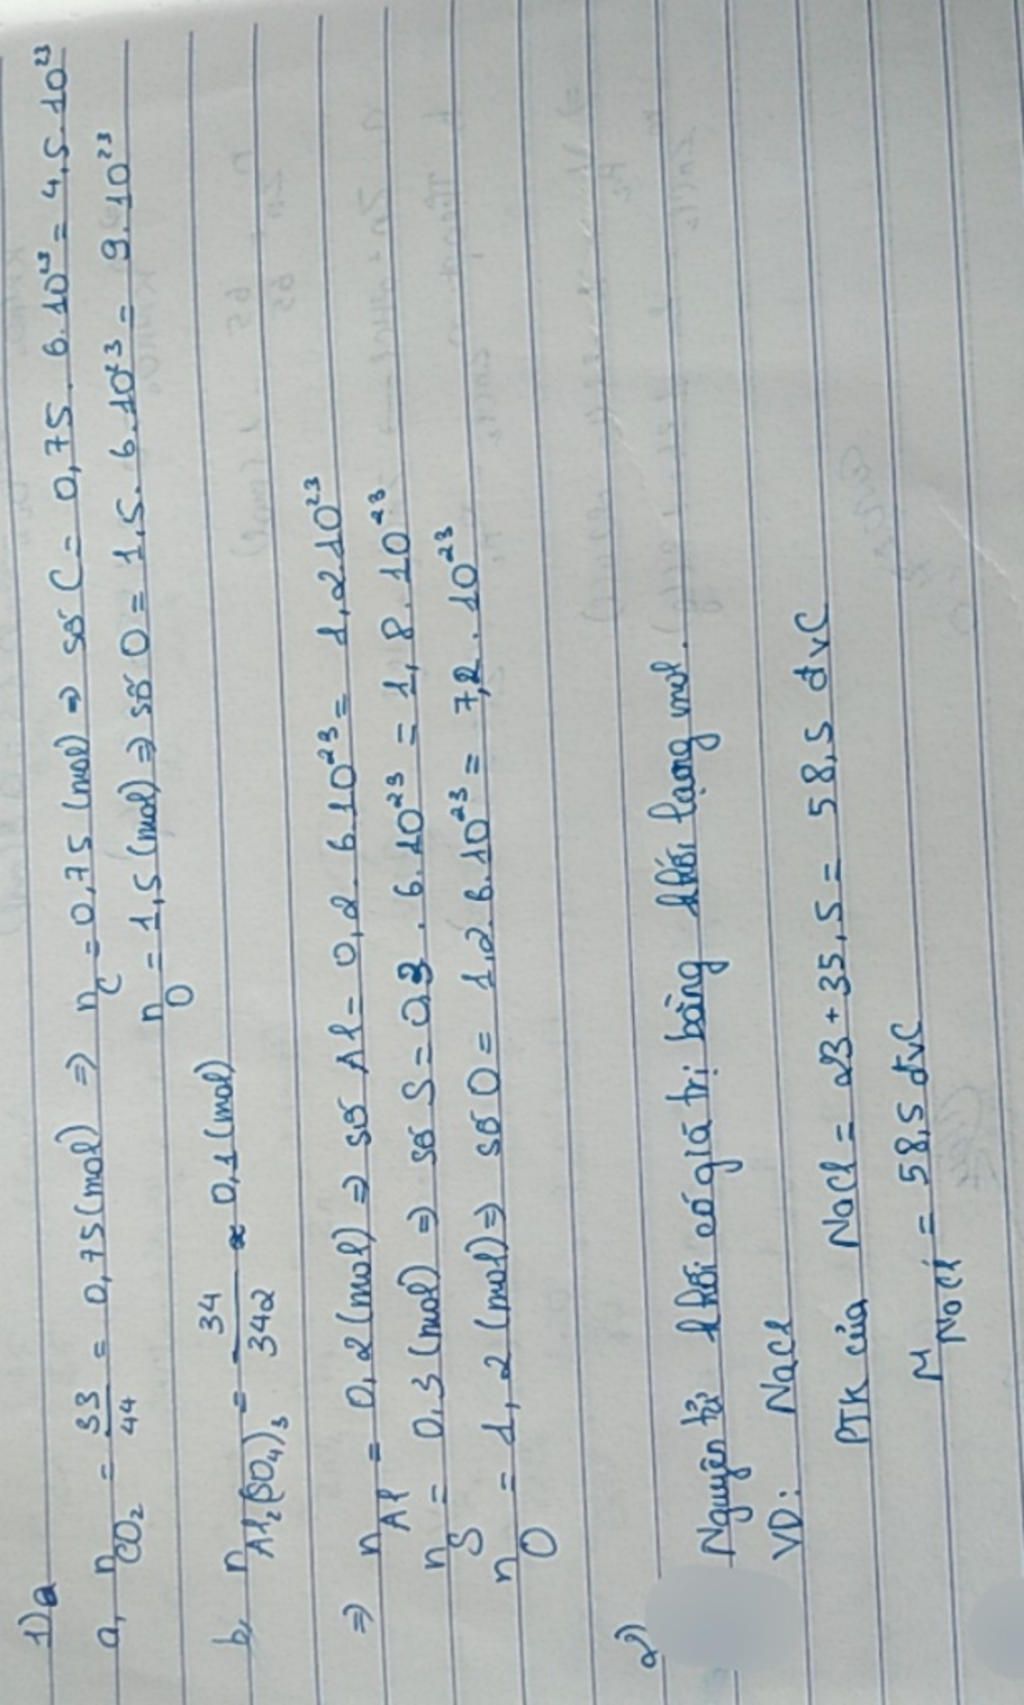 1) a
a, n CO₂ = 33/44 = 0,75 (mol) ⇒ n C = 0,75 (mol) ⇒ số C = 0,75 . 6.10²³ = 4,5.10²³
n O = 1,5 (mol) ⇒ số O = 1,5. 6.10²³ = 9.10²³
b, n Al₂(SO₄)₃ = 34/342 ≈ 0,1 (mol)
⇒ n Al = 0,2 (mol) ⇒ số Al = 0,2. 6.10²³ = 1,2.10²³
n S = 0,3 (mol) ⇒ số S = 0,3 . 6.10²³ = 1,8.10²³
n O = 1,2 (mol) ⇒ số O = 1,2.6.10²³ = 7,2.10²³
2)
Nguyên tử khối có giá trị bằng khối lượng mol.
VD: NaCl
PTK của NaCl = 23 + 35,5 = 58,5 đvC
M NaCl = 58,5 đvC